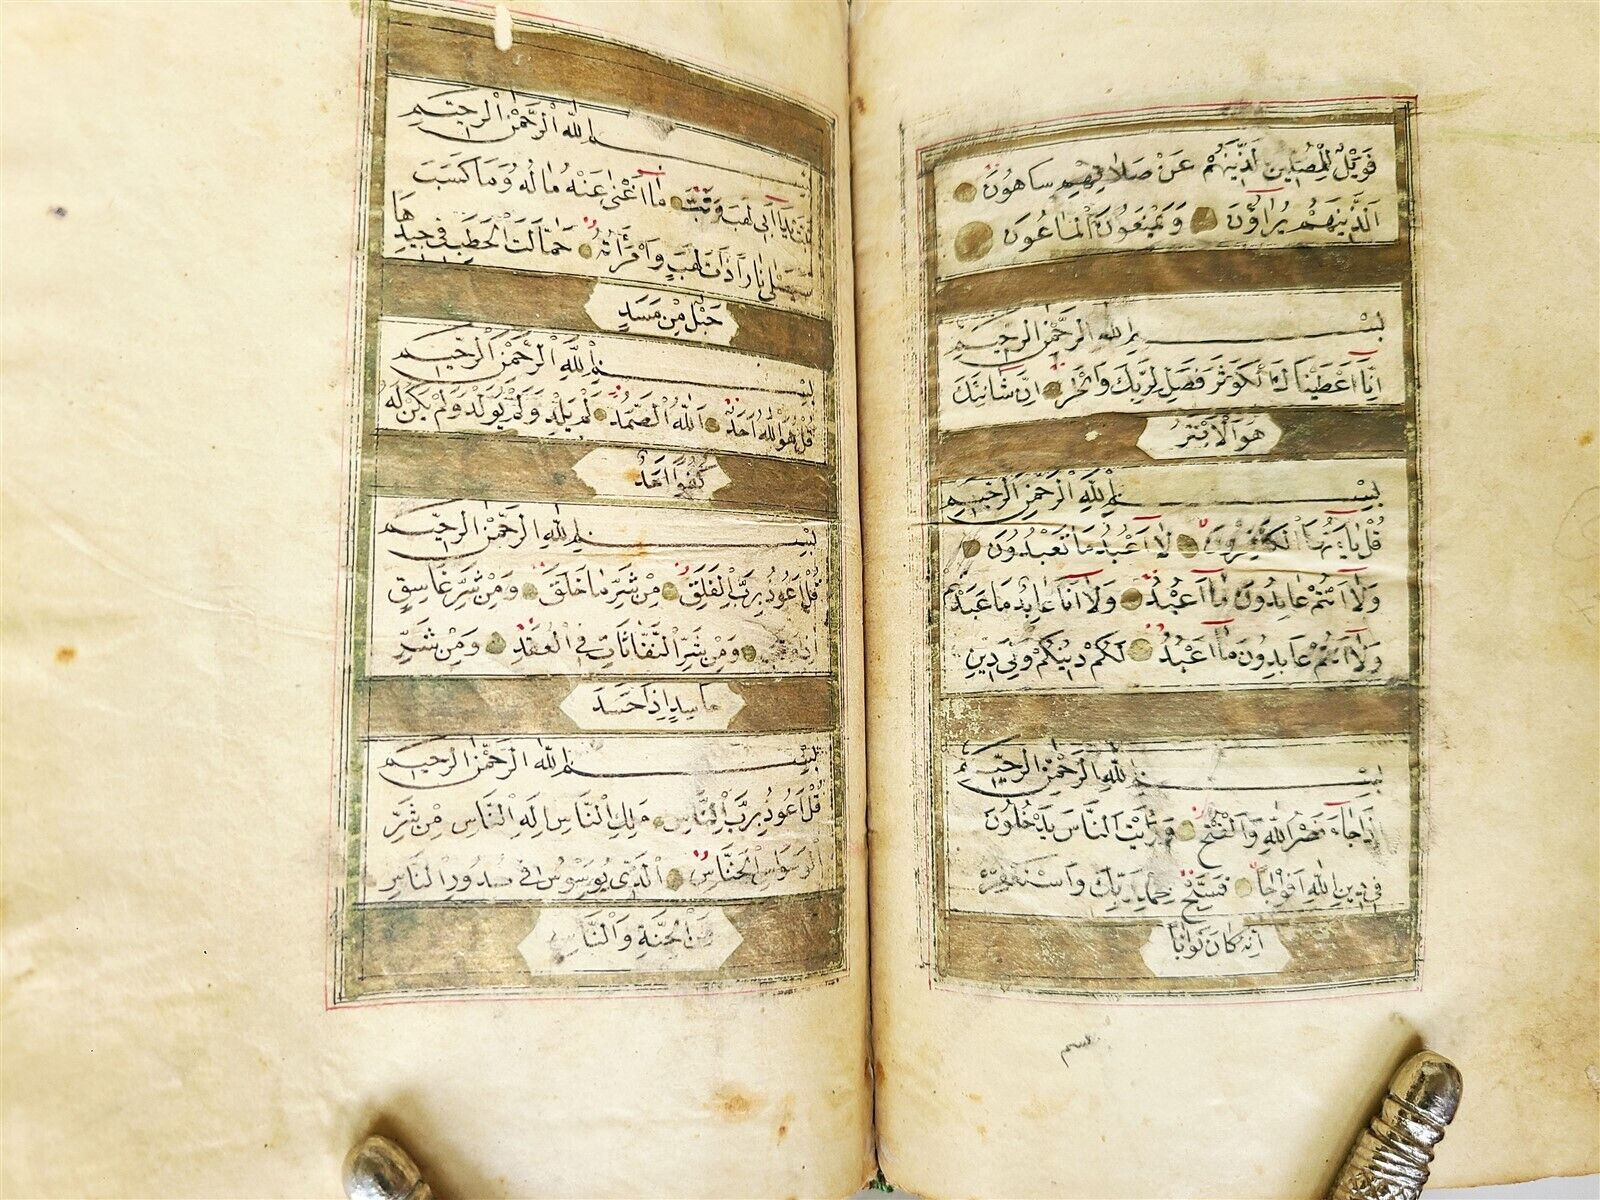 فَوَيْلٌ لِلْمُصَلِّينَ اَلَّذِينَهُمْ عَنْ صَلَاتِهِمْ سَاهُونَ
اَلَّذِينَهُمْ يُرَاؤُنَ وَيَمْنَعُونَ الْمَاعُونَ
بِسْمِ اللّٰهِ الرَّحْمٰنِ الرَّحِيمِ
اِنَّا اَعْطَيْنَاكَ الْكَوْثَرَ فَصَلِّ لِرَبِّكَ وَانْحَرْ اِنَّ شَانِئَكَ
هُوَ الْاَبْتَرُ
بِسْمِ اللّٰهِ الرَّحْمٰنِ الرَّحِيمِ
قُلْ يَا اَيُّهَا الْكَافِرُونَ لَا اَعْبُدُ مَا تَعْبُدُونَ
وَلَا اَنْتُمْ عَابِدُونَ مَا اَعْبُدُ وَلَا اَنَا عَابِدٌ مَا عَبَدْتُمْ
وَلَا اَنْتُمْ عَابِدُونَ مَا اَعْبُدُ لَكُمْ دِينُكُمْ وَلِيَ دِينِ
بِسْمِ اللّٰهِ الرَّحْمٰنِ الرَّحِيمِ
اِذَا جَاءَ نَصْرُ اللّٰهِ وَالْفَتْحُ وَرَاَيْتَ النَّاسَ يَدْخُلُونَ
فِي دِينِ اللّٰهِ اَفْوَاجًا فَسَبِّحْ بِحَمْدِ رَبِّكَ وَاسْتَغْفِرْهُ
اِنَّهُ كَانَ تَوَّابًا
بسم
بِسْمِ اللّٰهِ الرَّحْمٰنِ الرَّحِيمِ
تَبَّتْ يَدَا اَبِي لَهَبٍ وَتَبَّ مَا اَغْنٰى عَنْهُ مَالُهُ وَمَا كَسَبَ
سَيَصْلٰى نَارًا ذَاتَ لَهَبٍ وَامْرَاَتُهُ حَمَّالَتَ الْحَطَبِ فِي جِيدِهَا
حَبْلٌ مِنْ مَسَدٍ
بِسْمِ اللّٰهِ الرَّحْمٰنِ الرَّحِيمِ
قُلْ هُوَ اللّٰهُ اَحَدٌ اَللّٰهُ الصَّمَدُ لَمْ يَلِدْ وَلَمْ يُولَدْ وَلَمْ يَكُنْ لَهُ
كُفُوًا اَحَدٌ
بِسْمِ اللّٰهِ الرَّحْمٰنِ الرَّحِيمِ
قُلْ اَعُوذُ بِرَبِّ الْفَلَقِ مِنْ شَرِّ مَا خَلَقَ وَمِنْ شَرِّ غَاسِقٍ
اِذَا وَقَبَ وَمِنْ شَرِّ النَّفَّاثَاتِ فِي الْعُقَدِ وَمِنْ شَرِّ
حَاسِدٍ اِذَا حَسَدَ
بِسْمِ اللّٰهِ الرَّحْمٰنِ الرَّحِيمِ
قُلْ اَعُوذُ بِرَبِّ النَّاسِ مَلِكِ النَّاسِ اِلٰهِ النَّاسِ مِنْ شَرِّ
الْوَسْوَاسِ الْخَنَّاسِ اَلَّذِي يُوَسْوِسُ فِي صُدُورِ النَّاسِ
مِنَ الْجِنَّةِ وَالنَّاسِ